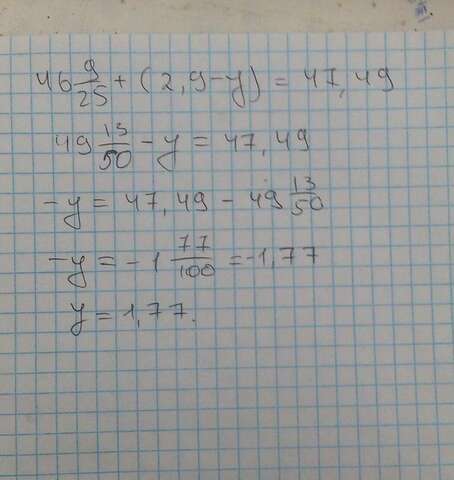 46 9/25 + (2,9-y) = 47,49
49 13/50 - y = 47,49
-y = 47,49 - 49 13/50
-y = -1 77/100 = -1,77
y = 1,77.